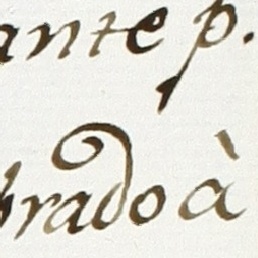 ante p.
brado à